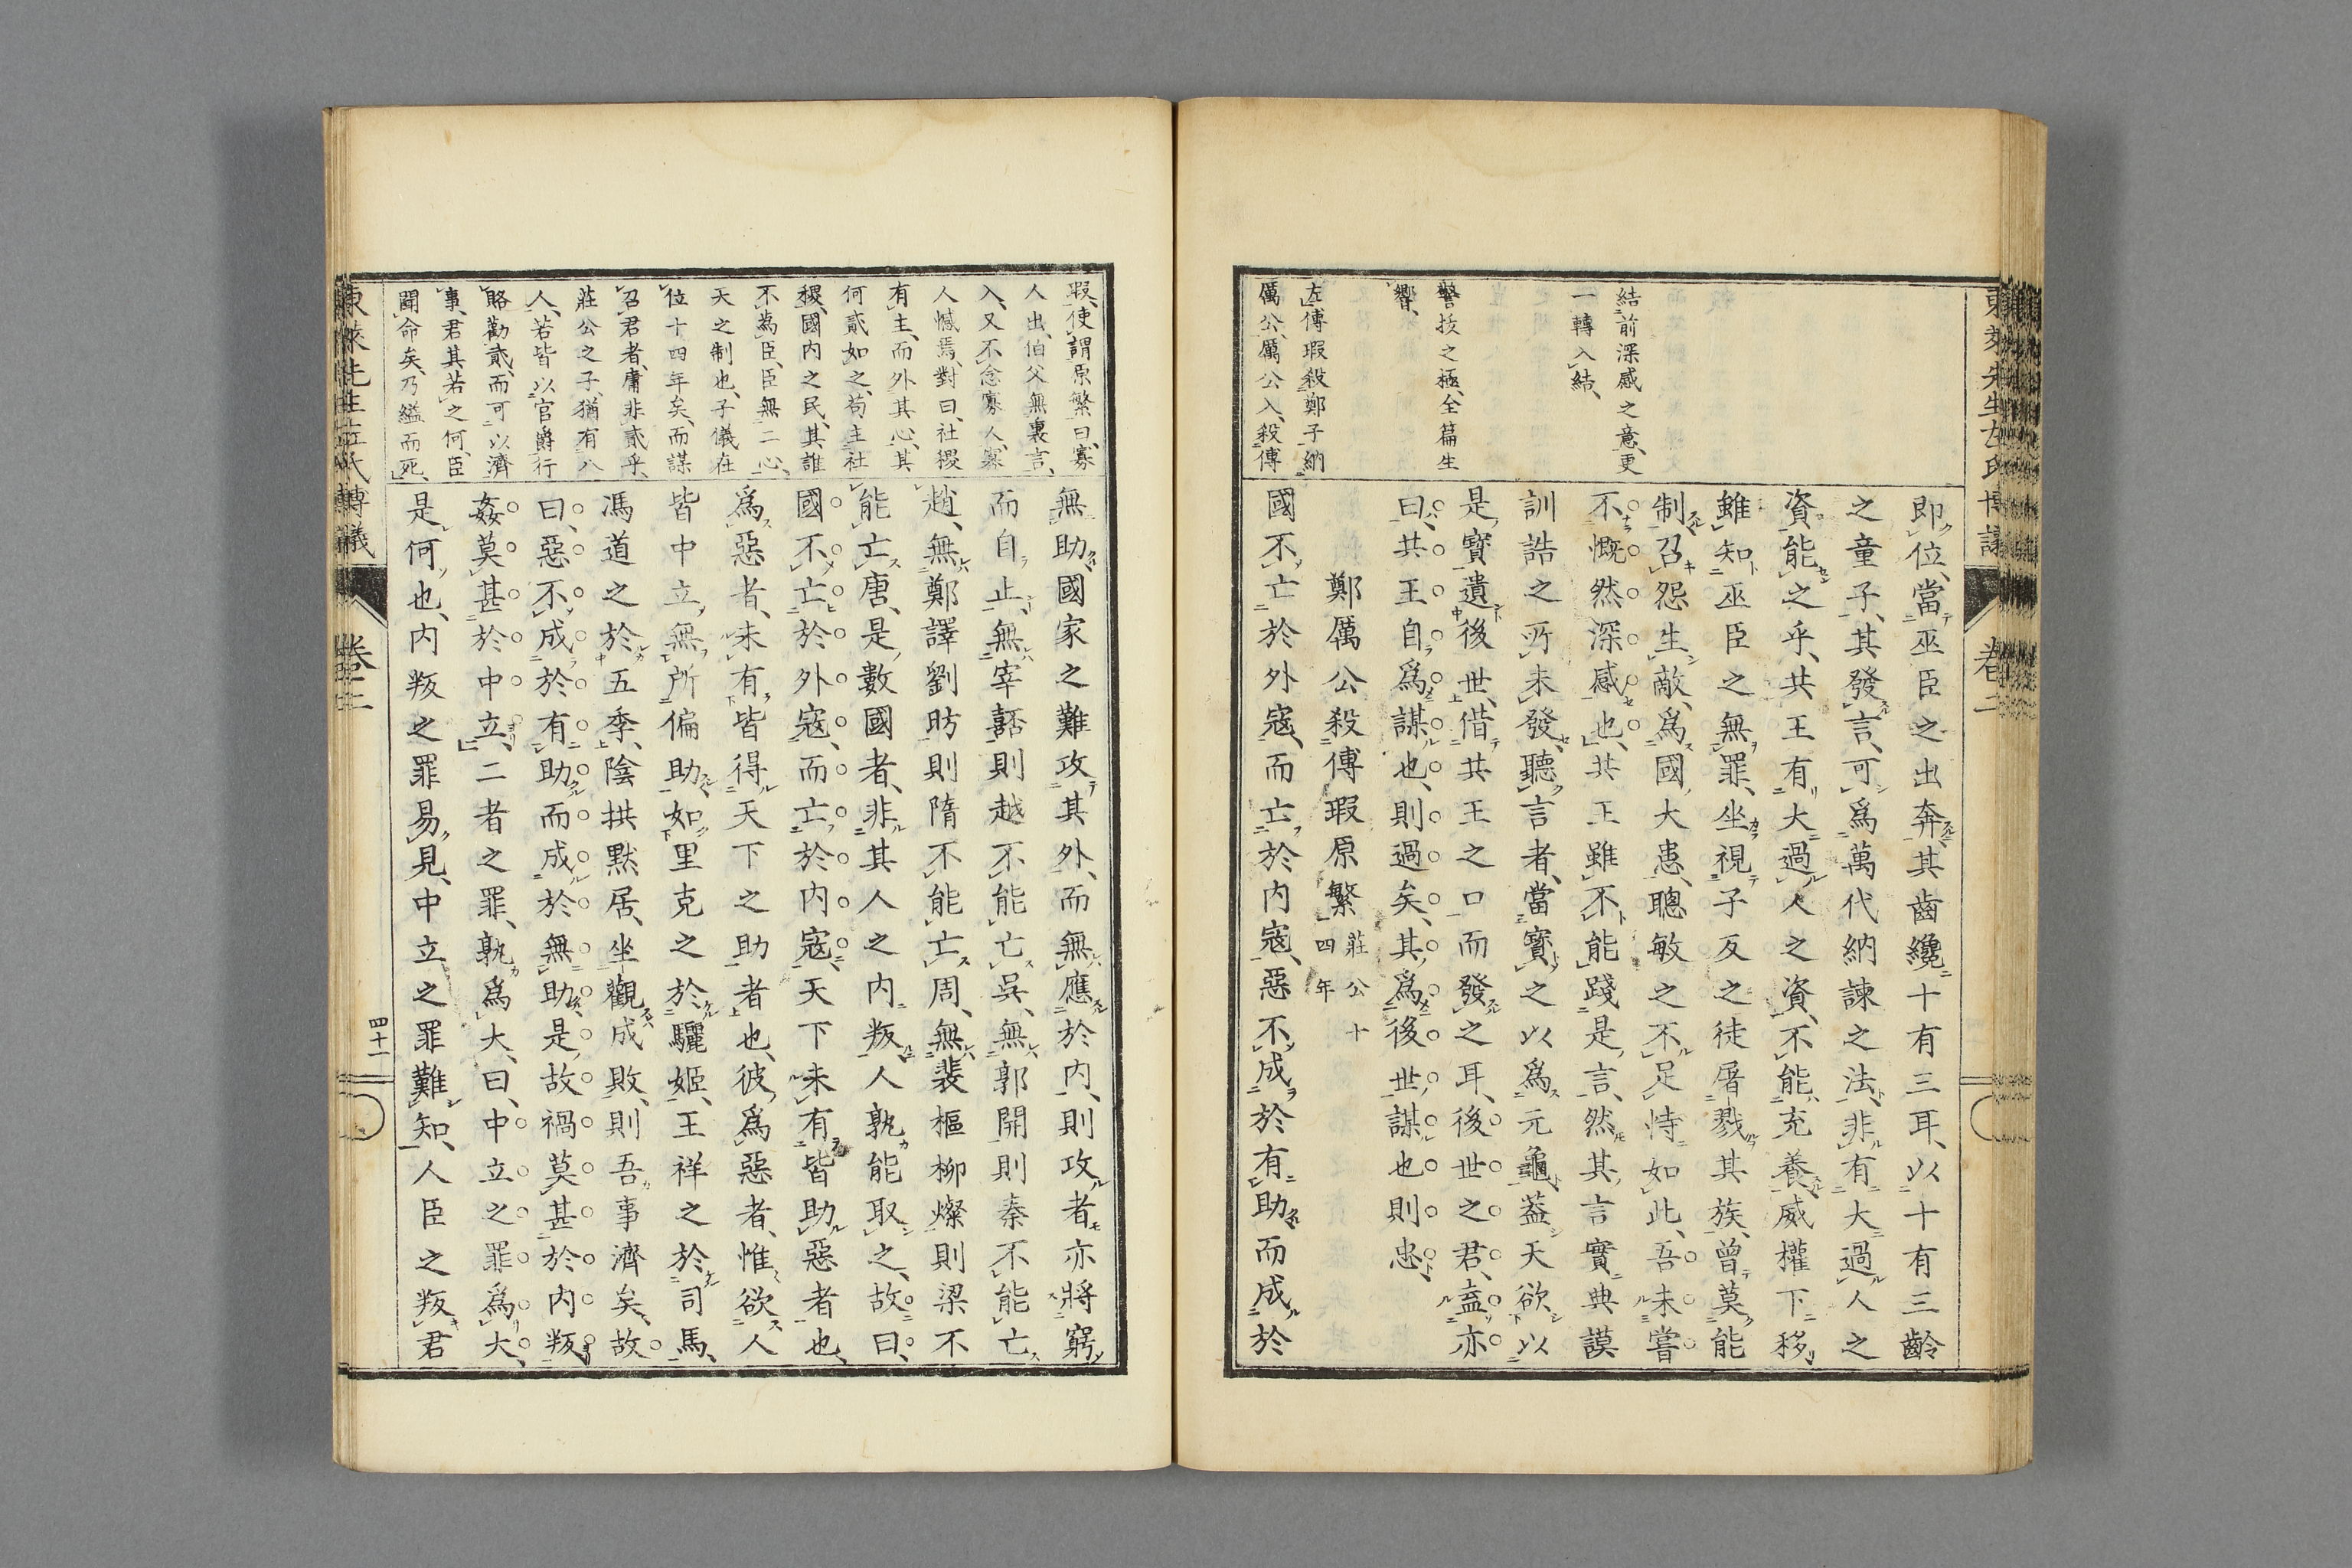 東萊先生左氏博議
卷二
結前深感之意更
一轉入結
警拔之極全篇生
響
左傳瑕殺鄭子納
厲公厲公入殺傅
即位當巫臣之出奔其齒纔十有三耳以十有三齡
之童子其發言可爲萬代納諫之法非有大過人之
資能之乎共王有大過人之資不能充養威權下移
雖知巫臣之無罪坐視子反之徒屠戮其族曾莫能
制召怨生敵爲國大患聰敏之不足恃如此吾未嘗
不慨然深感也共王雖不能踐是言然其言實典謨
訓誥之所未發聽言者當寶之以爲元龜蓋天欲以
是寶遺後世借共王之口而發之耳後世之君盍亦
曰共王自爲謀也則過矣其爲後世謀也則忠
鄭厲公殺傅瑕原繁莊公十
四年
國不亡於外寇而亡於内寇惡不成於有助而成於
瑕使謂原繁曰寡
人出伯父無裏言
入又不念寡人寡
人憾焉對曰社稷
有主而外其心其
何貳如之苟主社
稷國内之民其誰
不爲臣臣無二心
天之制也子儀在
位十四年矣而謀
召君者庸非貳乎
莊公之子猶有八
人若皆以官爵行
賂勸貳而可以濟
事君其若之何臣
聞命矣乃縊而死
無助國家之難攻其外而無應於内則攻者亦將窮
而自止無宰嚭則越不能亡吳無郭開則秦不能亡
趙無鄭譯劉昉則隋不能亡周無裴樞柳燦則梁不
能亡唐是數國者非其人之内叛人孰能取之故曰
國不亡於外寇而亡於内寇天下未有皆助惡者也
爲惡者未有皆得天下之助者也彼爲惡者惟欲人
皆中立無所偏助如里克之於驪姬王祥之於司馬
馮道之於五季陰拱默居坐觀成敗則吾事濟矣故
曰惡不成於有助而成於無助是故禍莫甚於内叛
姦莫甚於中立二者之罪孰爲大曰中立之罪爲大
是何也内叛之罪易見中立之罪難知人臣之叛君
東萊先生左氏博議
卷二
四十一